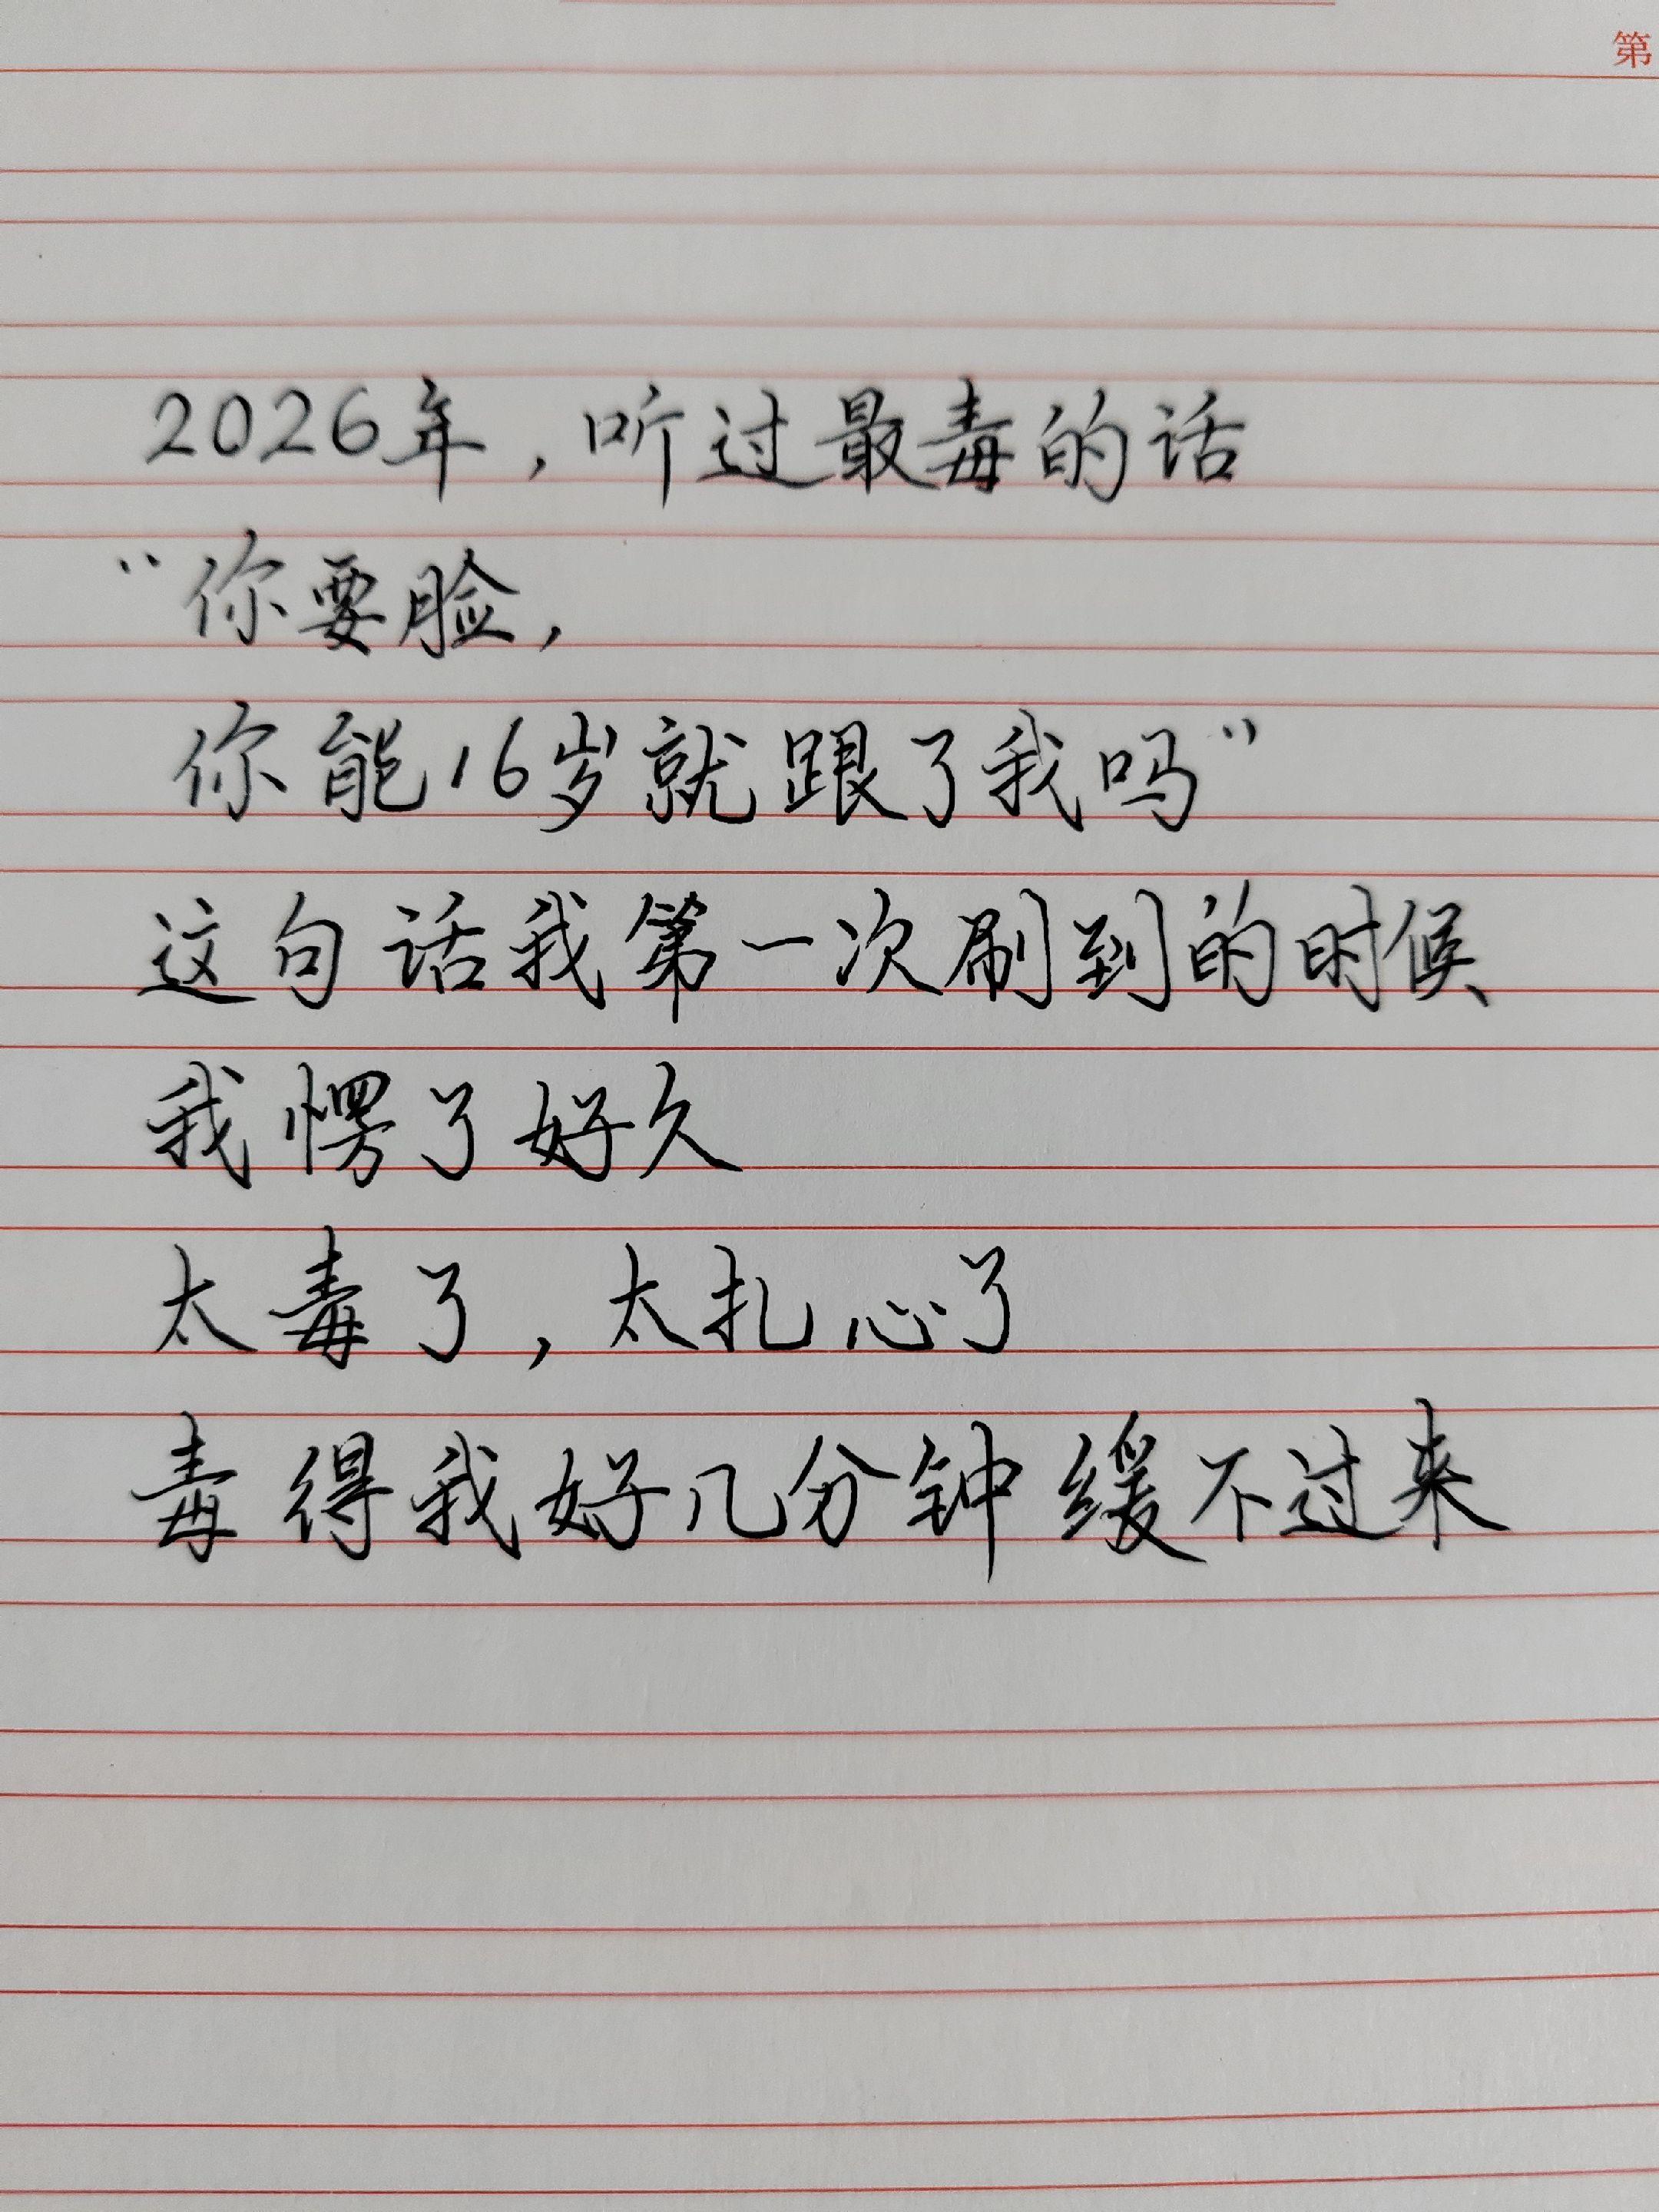 第
2026年，听过最毒的话
“你要脸，
你能16岁就跟了我吗”
这句话我第一次刷到的时候
我愣了好久
太毒了，太扎心了
毒得我好几分钟缓不过来